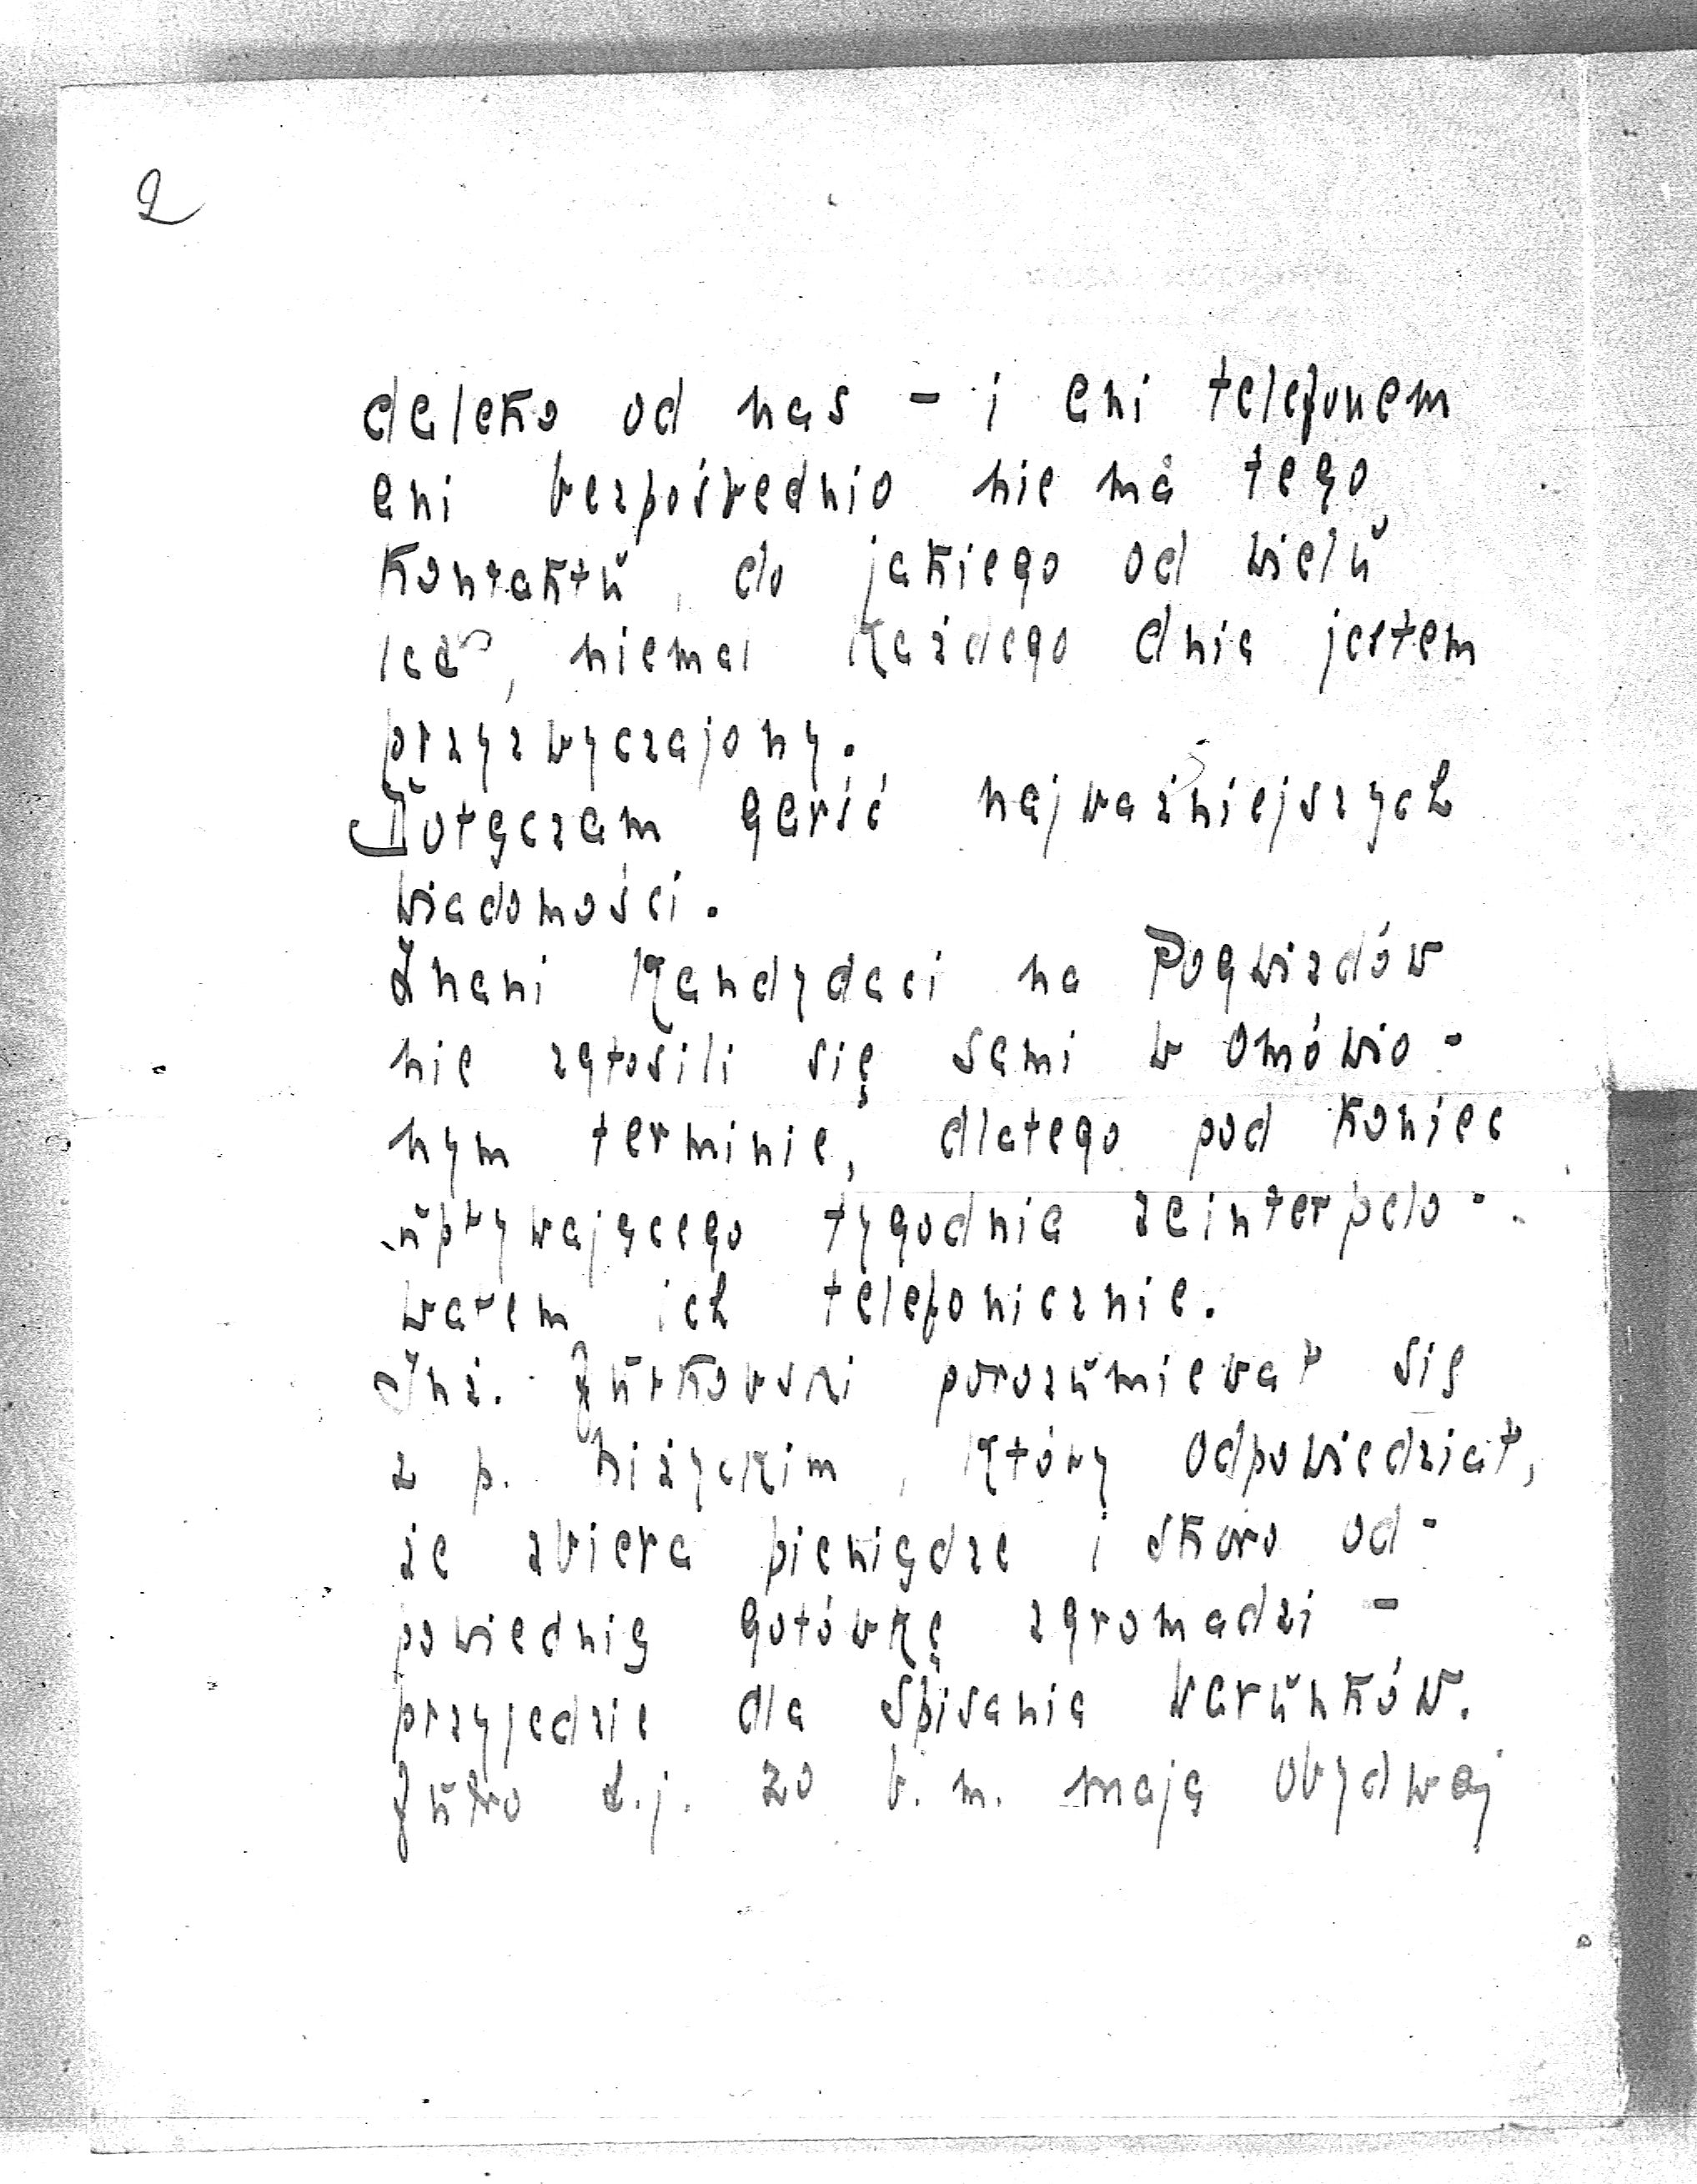 2
daleko od nas - i ani telefonem
ani bezpośrednio nie ma tego
kontaktu, do jakiego od wielu
lat, niemal każdego dnia jestem
przyzwyczajony.
Dołączam garść najważniejszych
wiadomości.
Znani kandydaci na Pogwizdów
nie zgłosili się sami w omówio-
nym terminie, dlatego pod koniec
upływającego tygodnia zainterpelo-
wałem ich telefonicznie.
Inż. Jurkowski porozumiewał się
z p. Niżyckim, który odpowiedział,
że zbiera pieniądze i skoro od-
powiednią gotówkę zgromadzi -
przyjedzie dla spisania warunków.
Jutro t.j. 20 b.m. mają obydwaj